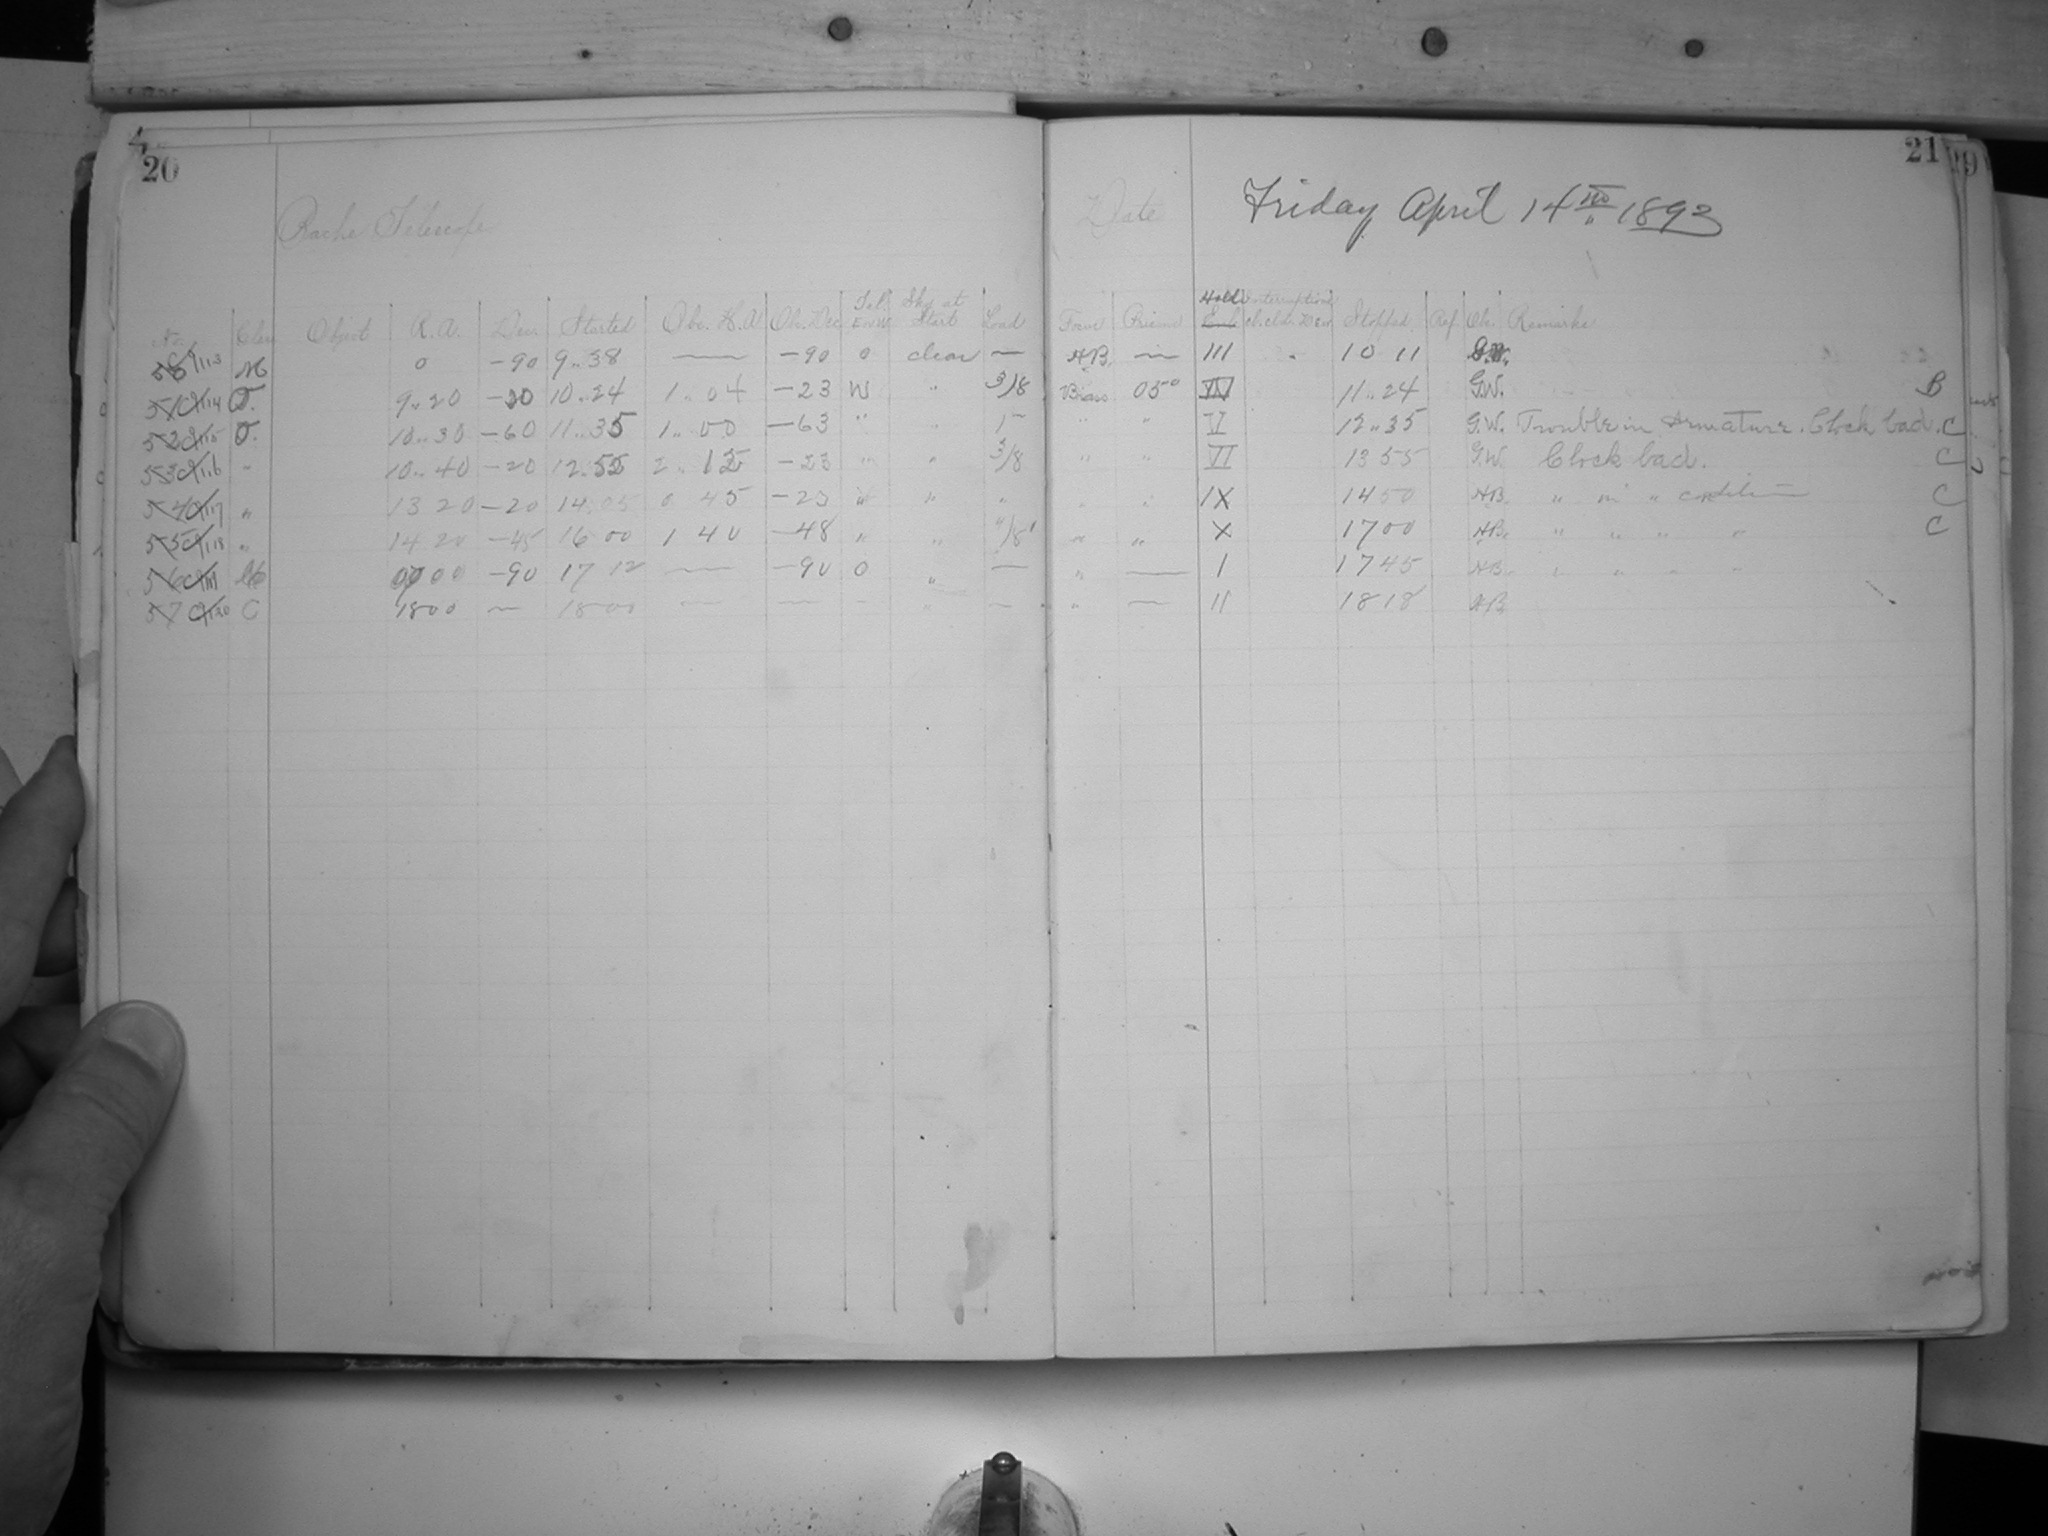 20
21
19
Bache Telescope
Date Friday April 14th 1893
No. Class Object R.A. Dec. Started Obs. H.A. Obs. Dec. Tel. E or W Sky at Start Load Focus Prism Hold Stopped Ref. Obs. Remarks
113 M 0 -90 9.. 38 — -90 0 clear — H.B. — III 10 11 G.W.
114 9.. 20 -20 10.. 24 1.. 04 -23 W " 3/8 Brass 05° IV 11.. 24 G.W. B
52 115 10.. 30 -60 11.. 35 1.. 00 -63 " " 1- " " V 12.. 35 G.W. Trouble in Armature. Clock bad. C
53 116 " 10.. 40 -20 12.. 55 2.. 15 -23 " " 3/8 " " VI 13 55 G.W. Clock bad. C
54 117 " 13 20 -20 14.05 0 45 -23 " " " " " IX 14 50 H.B. " in " condition C
55 118 " 14 20 -45 16 00 1 40 -48 " " " " X 17 00 H.B. " " " " C
56 00 00 -90 17 12 — -90 0 " — " — I 17 45 H.B. " " " "
57 120 C 18 00 — 18 00 — — — " — " — II 18 18 H.B.